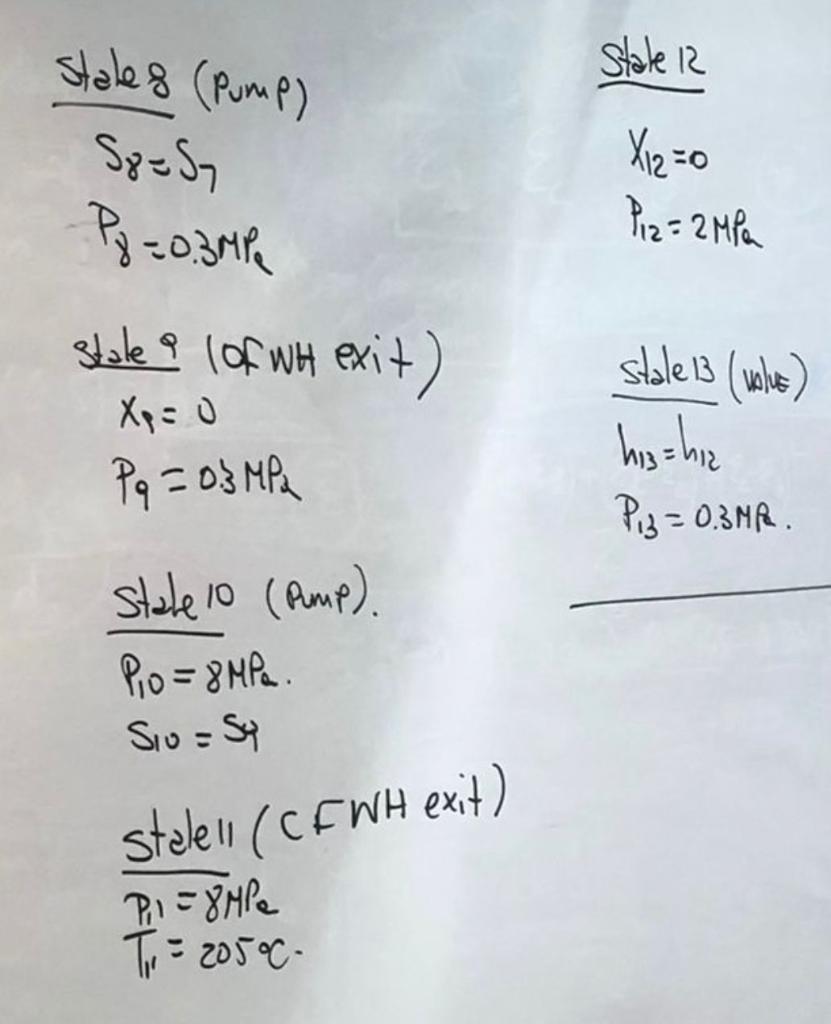 State 8 (Pump)
S8 = S7
P8 = 0.3 MPa
State 9 (OFWH exit)
X9 = 0
P9 = 0.3 MPa
State 10 (Pump).
P10 = 8 MPa.
S10 = S9
State 11 (CFWH exit)
P11 = 8 MPa
T11 = 205 °C.
State 12
X12 = 0
P12 = 2 MPa
State 13 (valve)
h13 = h12
P13 = 0.3 MPa.